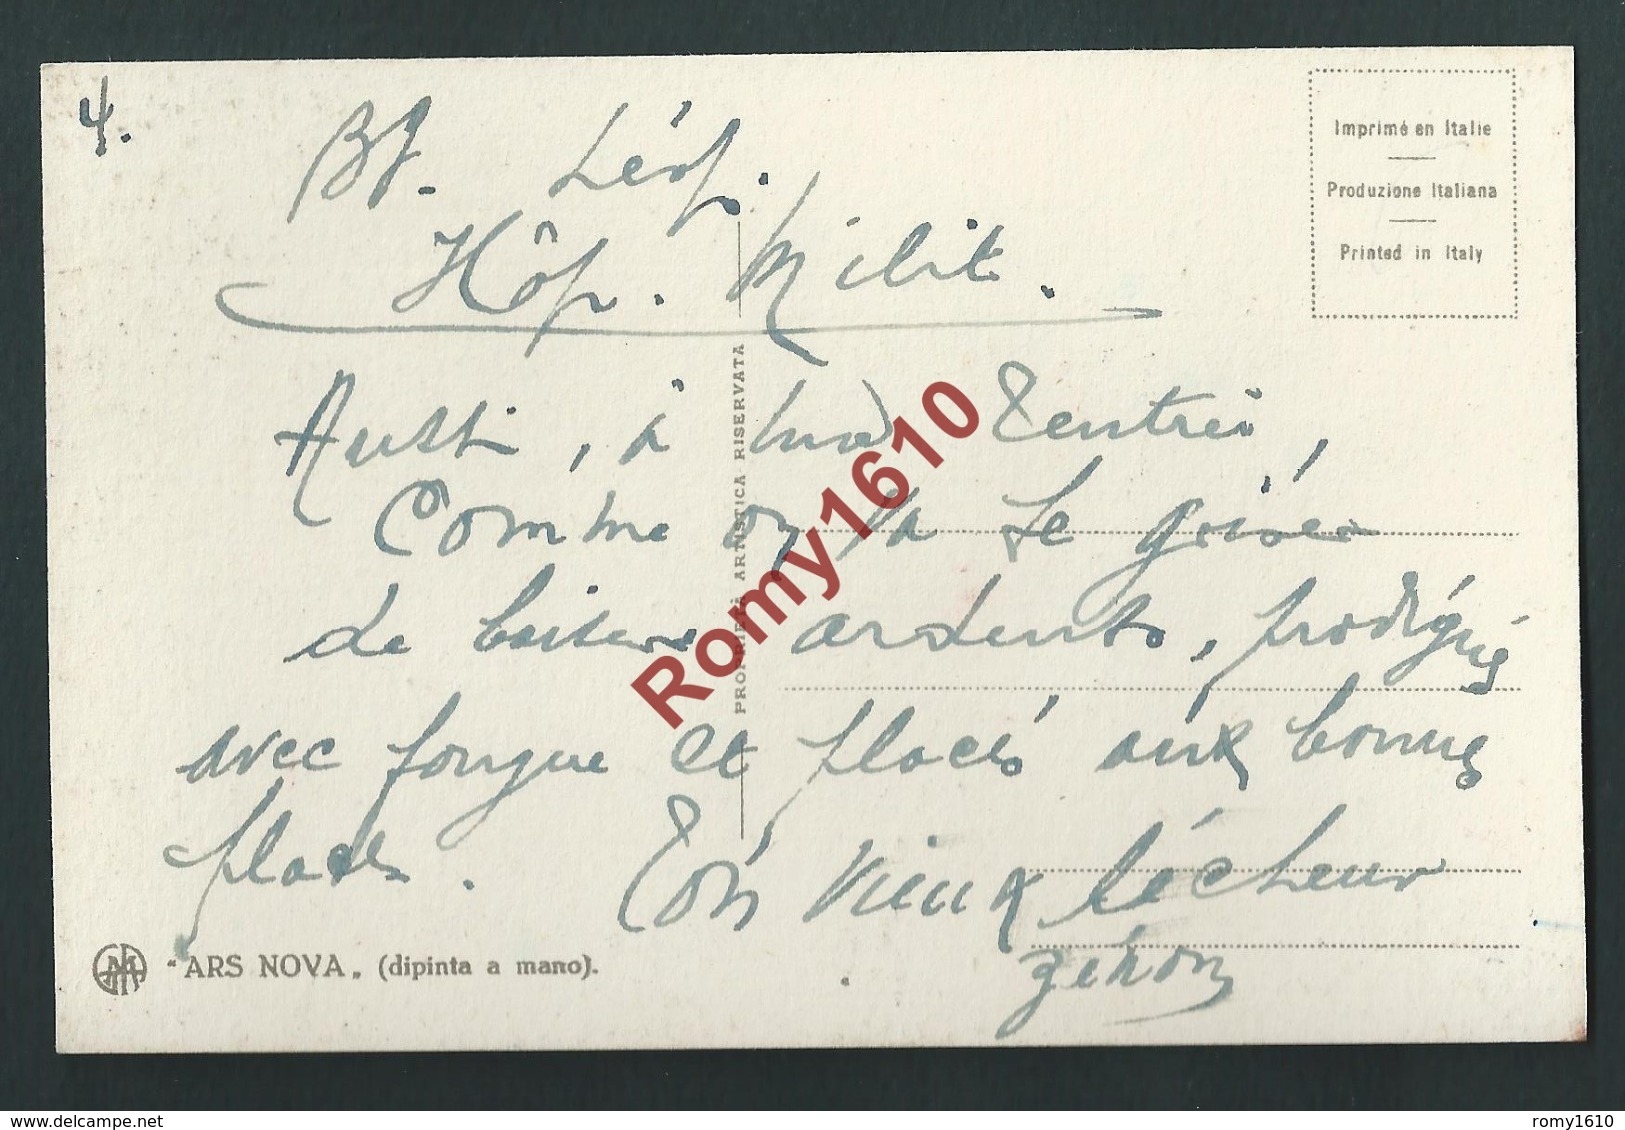 4.
Bf. Léop.
Hôp. Milit.
Imprimé en Italie
Produzione Italiana
Printed in Italy
Aussi, à ma rentrée,
comme on va se griser
de baisers ardents, prodigués
avec fougue et placés aux bonnes
places. Ton vieux lécheur
Zénon
PROPRIETÀ ARTISTICA RISERVATA
"ARS NOVA" (dipinta a mano).
Romy1610
delcampe.net
romy1610